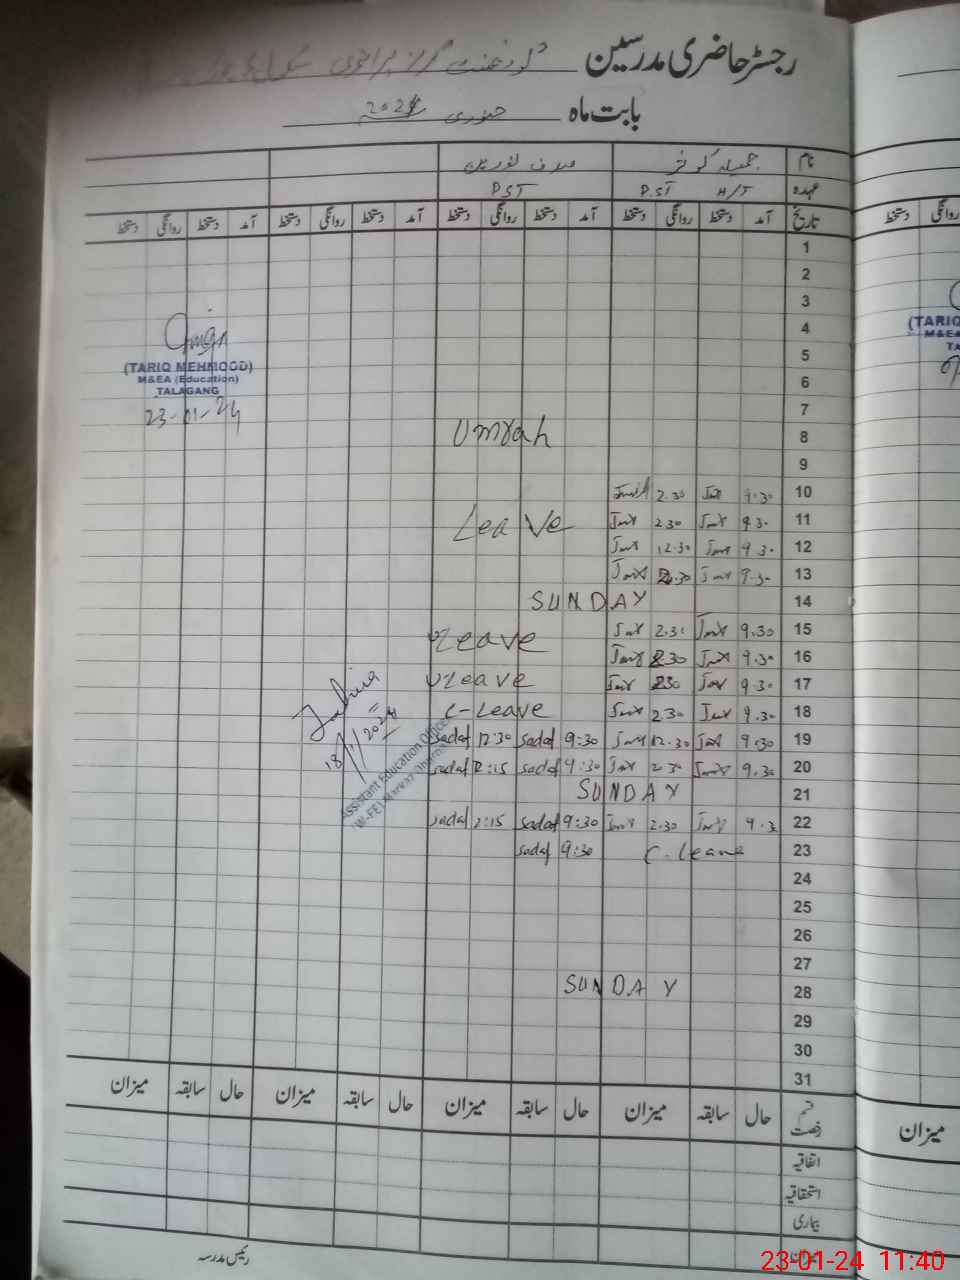 رجسٹر حاضری مدرسین گورنمنٹ گرلز پرائمری
بابت ماہ جنوری 2024
نام جمیلہ کوثر صدف نورین
عہدہ H/T P.ST PST
تاریخ آمد دستخط روانگی دستخط آمد دستخط روانگی دستخط آمد دستخط روانگی دستخط آمد دستخط روانگی دستخط
1
2
3
4
5
6
7
8 Umrah
9
10 9.30 2.30
11 Leave 9.30 2.30
12 9.30 12.30
13 9.30 2.30
14 SUNDAY
15 Leave 9.30 2.30
16 9.30 2.30
17 Leave 9.30 2.30
18 C-Leave 9.30 2.30
19 sadaf 12:30 sadaf 9:30 12.30 9.30
20 sadaf 2:15 sadaf 9:30 2.30 9.30
21 SUNDAY
22 sadaf 2:15 sadaf 9:30 2.30 9.3
23 sadaf 9:30 C. Leave
24
25
26
27
28 SUNDAY
29
30
31
(TARIQ MEHMOOD)
M&EA (Education)
TALAGANG
23-01-24
18/1/2024
Assistant Education Officer
قسم رخصت حال سابقہ میزان حال سابقہ میزان حال سابقہ میزان حال سابقہ میزان
اتفاقیہ
استحقاقیہ
بیماری
میزان
رئیس مدرسہ
دستخط روانگی
(TARIQ
M&EA
TA
میزان
23-01-24 11:40